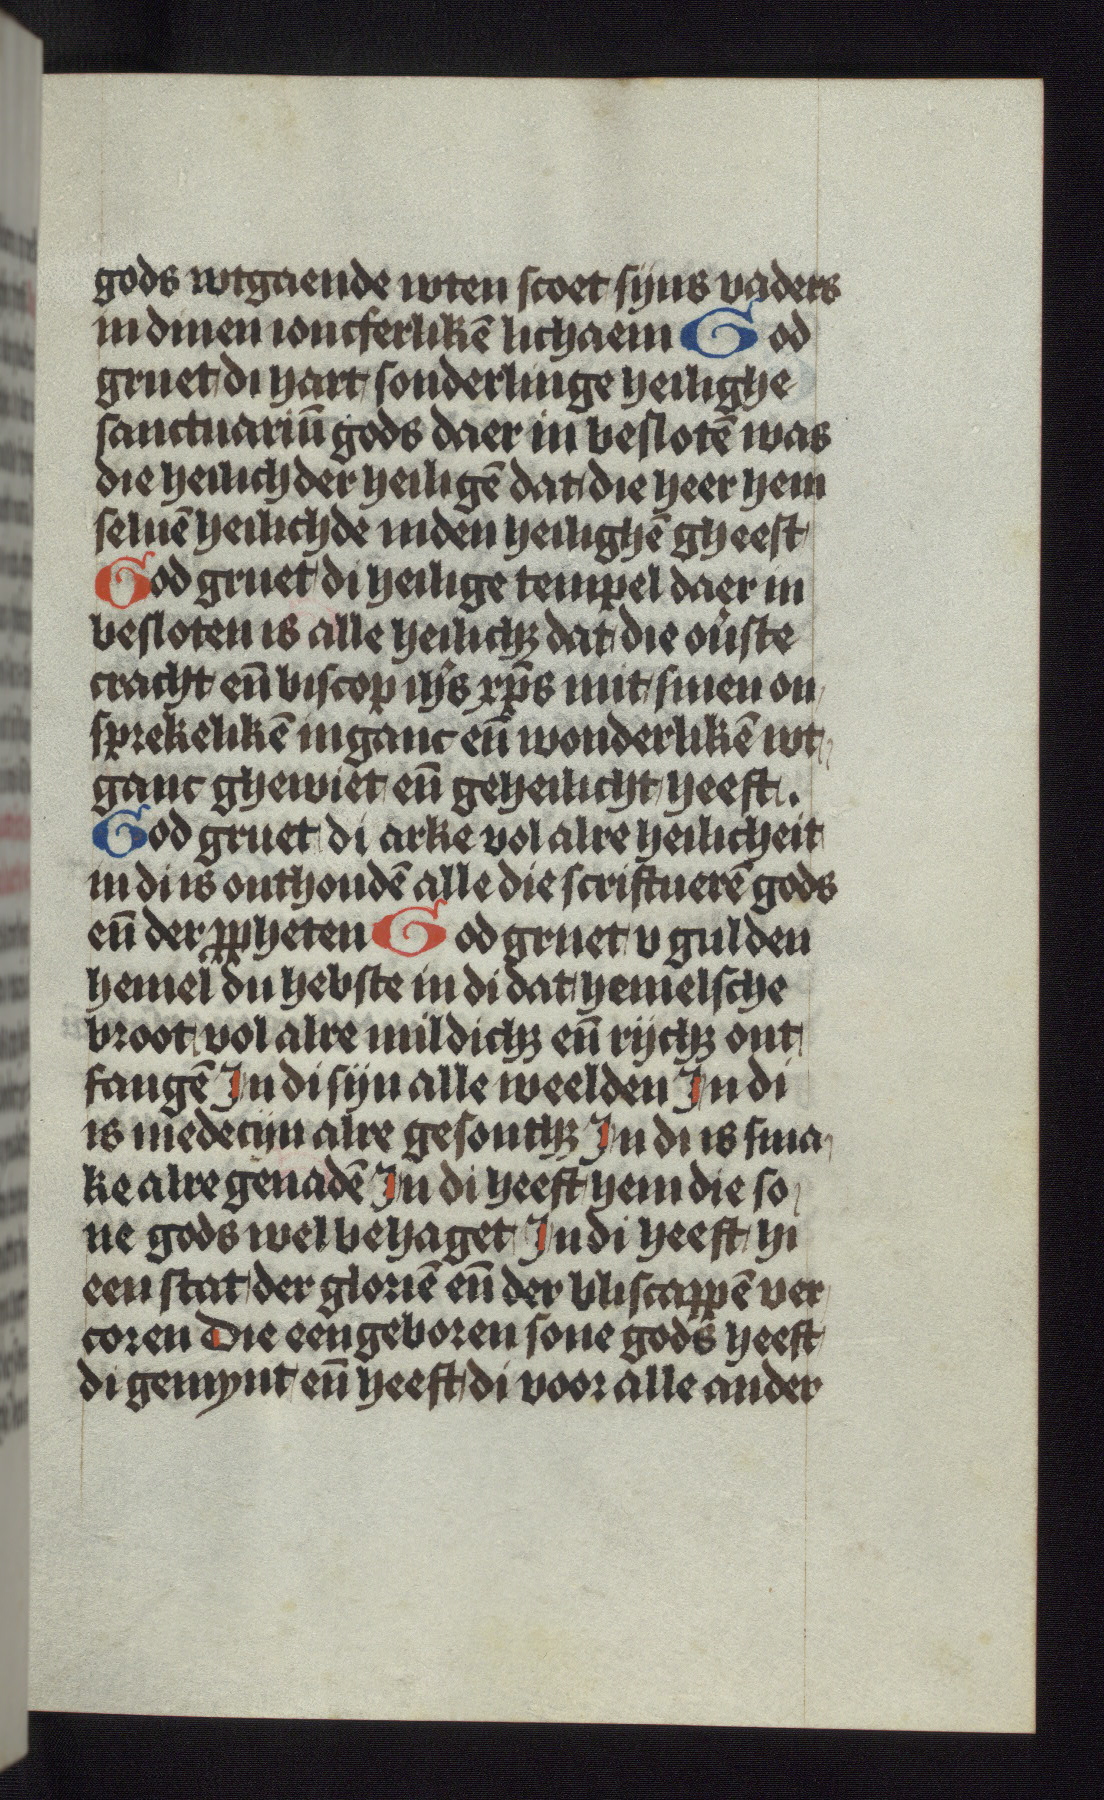 gods wtgaende wten scoet sijns vaders
in dinen ioncferlikē lichaem God
gruet di hart sonderlinge heilighe
sanctuariū gods daer in beslotē was
die heilich der heiligē dat die heer hem
seluē heilichde in den heilighē gheest
God gruet di heilige tempel daer in
besloten is alle heilichꝫ dat die ou̓ste
cracht eñ biscop ih̄s xp̄s mit sinen on
sprekelikē inganc eñ wonderlikē wt
ganc ghewiet eñ geheilicht heeft.
God gruet di arke vol alre heilicheit
in di is onthoudē alle die scriftuerē gods
eñ der ꝓpheten God gruet v gulden
hemel du hebste in di dat hemelsche
broot vol alre mildichꝫ eñ rijchꝫ ont
fangē In di sijn alle weelden In di
is medecijn alre gesonthꝫ In di is sma
ke alre genadē In di heeft hem die so
ne gods wel behaget In di heeft hi
een stat der gloriē eñ der bliscappē ver
coren Die eengeboren sone gods heeft
di gemynt eñ heeft di voor alle ander